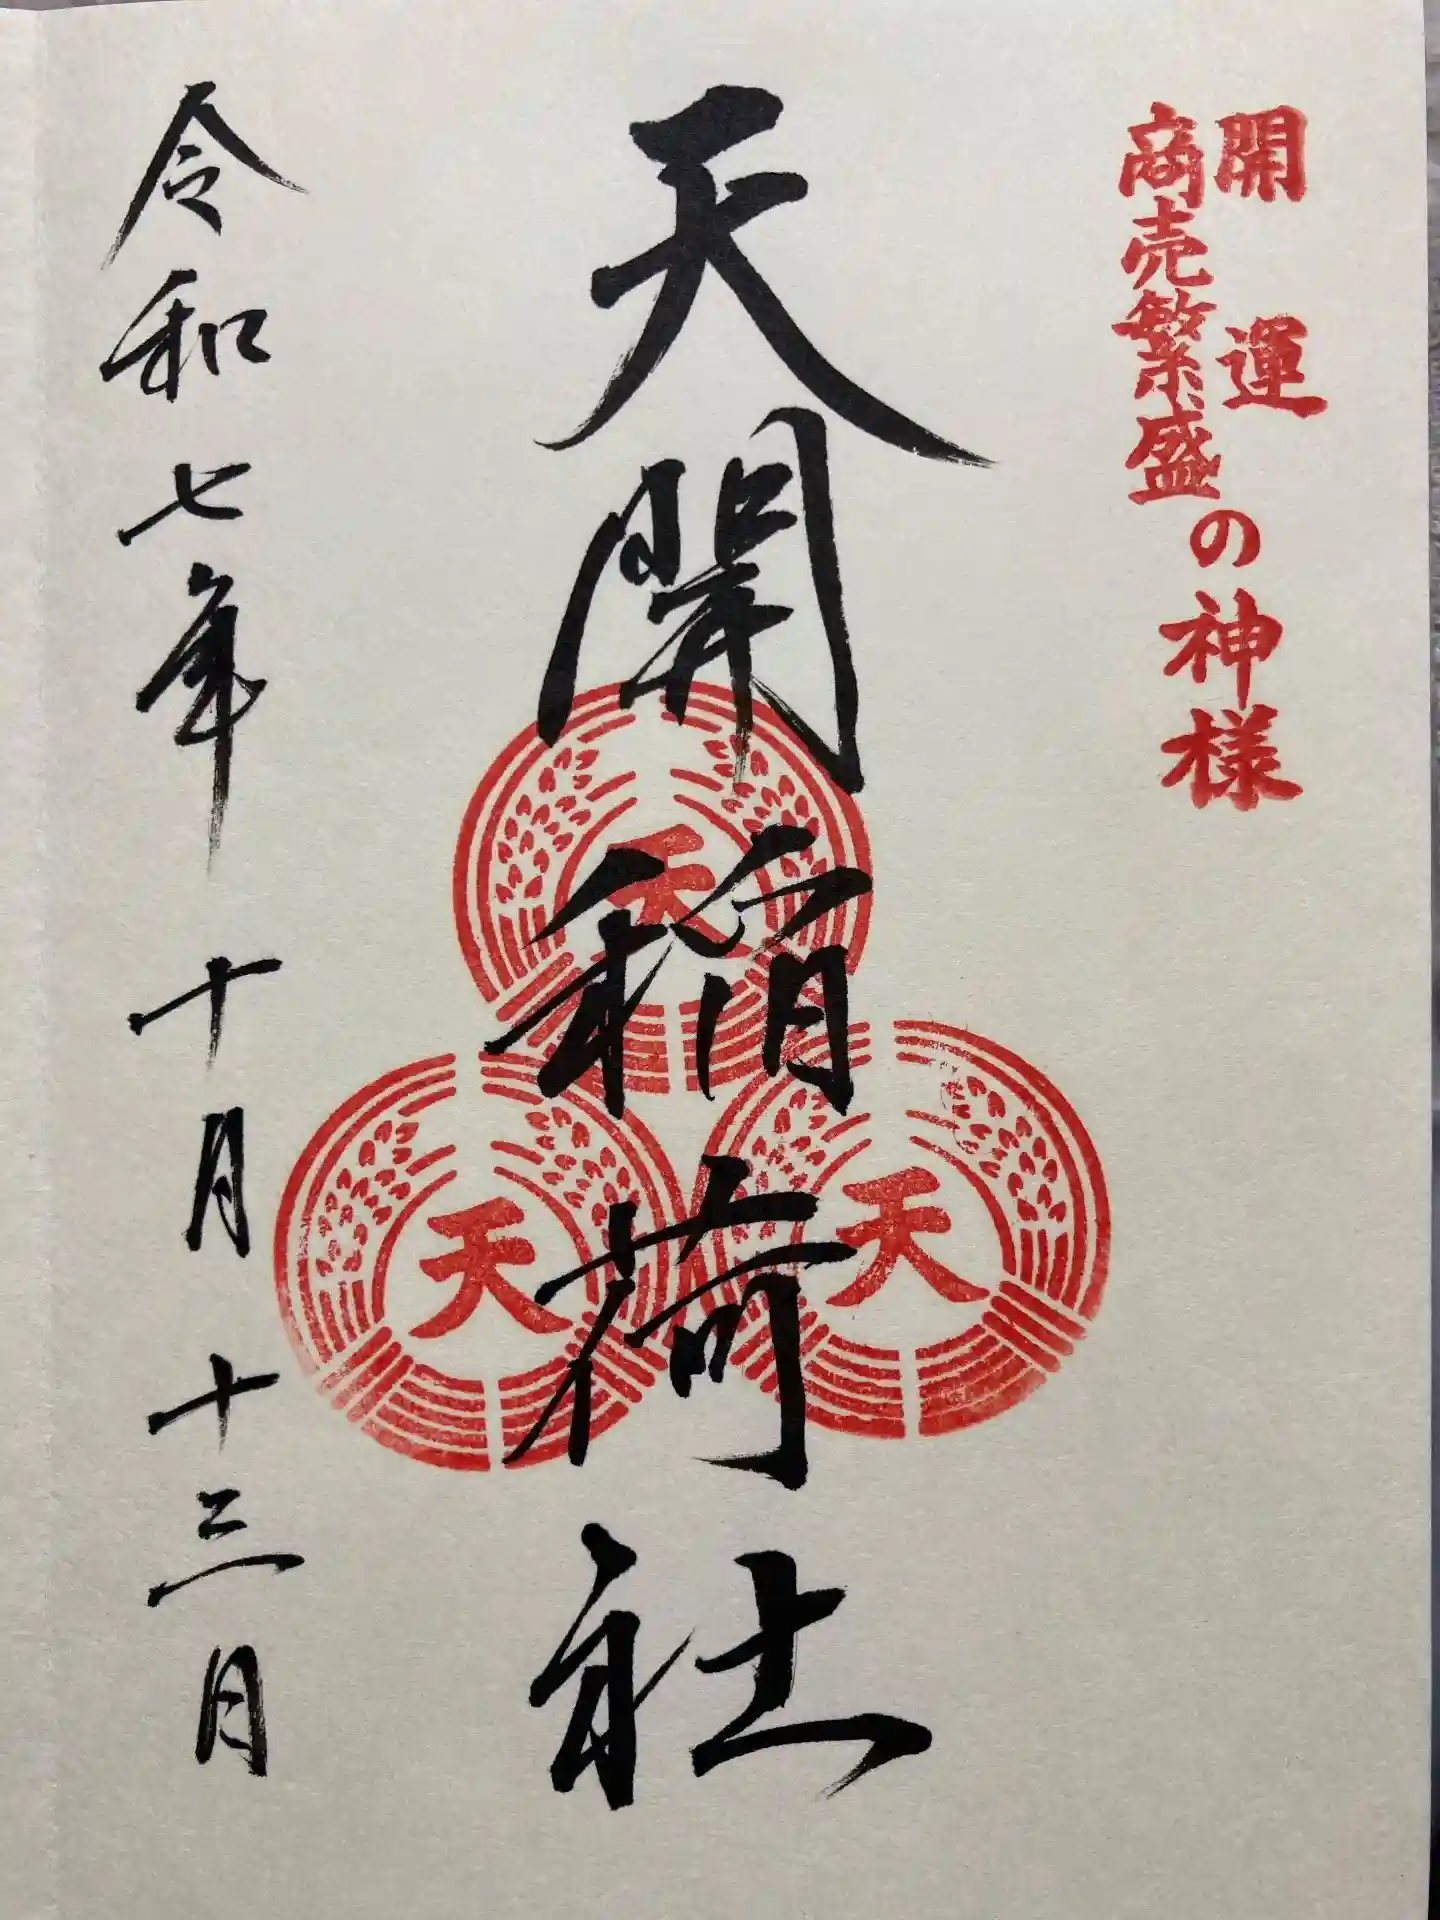 開運
商売繁盛
の神様
天開稲荷社
天
天
天
令和七年 十月 十三日